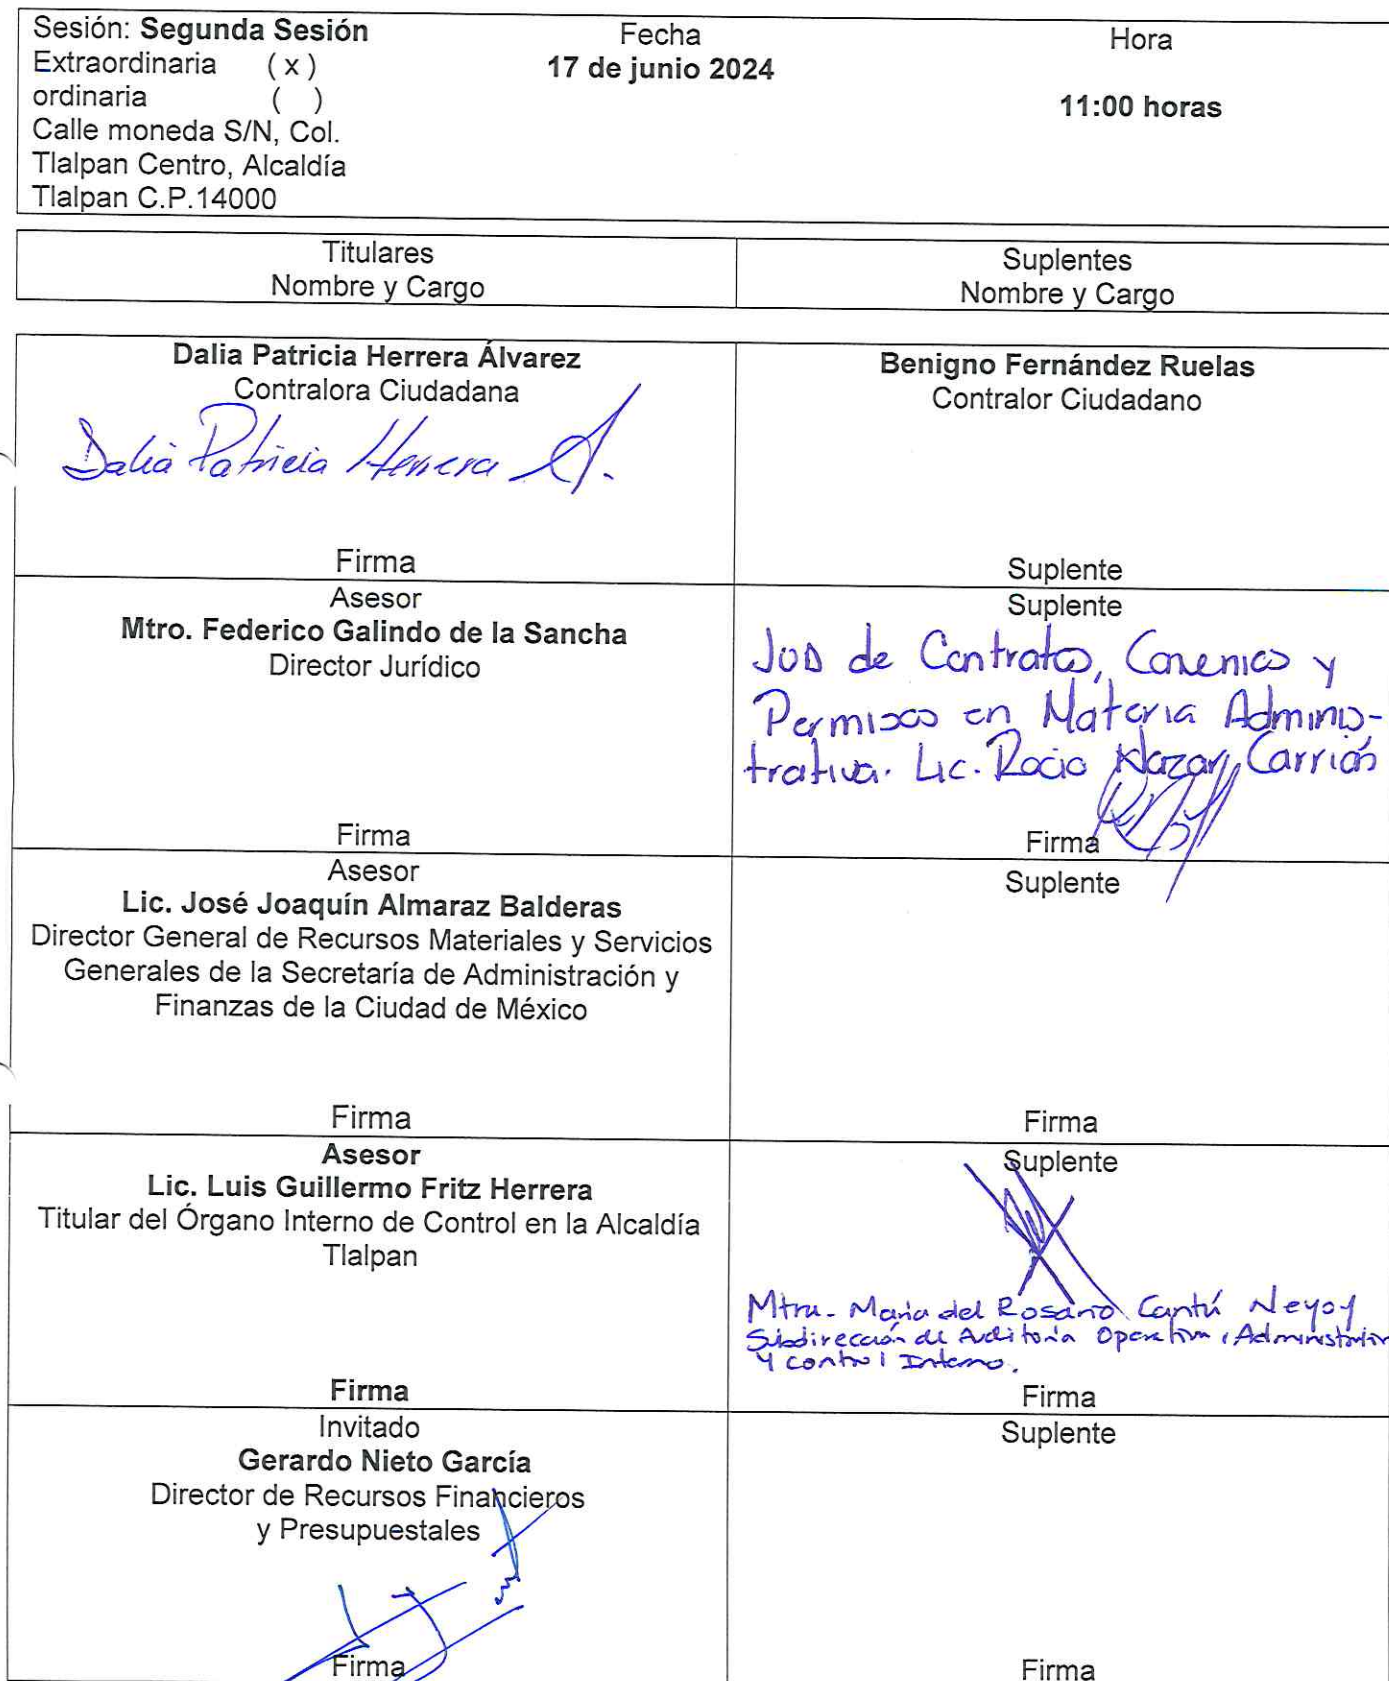 Sesión: Segunda Sesión
Extraordinaria ( x )
ordinaria ( )
Calle moneda S/N, Col.
Tlalpan Centro, Alcaldía
Tlalpan C.P.14000
Fecha
17 de junio 2024
Hora
11:00 horas
Titulares
Nombre y Cargo
Suplentes
Nombre y Cargo
Dalia Patricia Herrera Álvarez
Contralora Ciudadana
Dalia Patricia Herrera A.
Firma
Benigno Fernández Ruelas
Contralor Ciudadano
Suplente
Asesor
Mtro. Federico Galindo de la Sancha
Director Jurídico
Firma
Suplente
JUD de Contratos, Convenios y
Permisos en Materia Adminis-
trativa. Lic. Rocio Nazar Carrión
Firma
Asesor
Lic. José Joaquín Almaraz Balderas
Director General de Recursos Materiales y Servicios
Generales de la Secretaría de Administración y
Finanzas de la Ciudad de México
Firma
Suplente
Firma
Asesor
Lic. Luis Guillermo Fritz Herrera
Titular del Órgano Interno de Control en la Alcaldía
Tlalpan
Firma
Suplente
Mtra. Maria del Rosario Cantú Neyoy
Subdirección de Auditoría Operativa, Administrativa
y control Interno.
Firma
Invitado
Gerardo Nieto García
Director de Recursos Financieros
y Presupuestales
Firma
Suplente
Firma